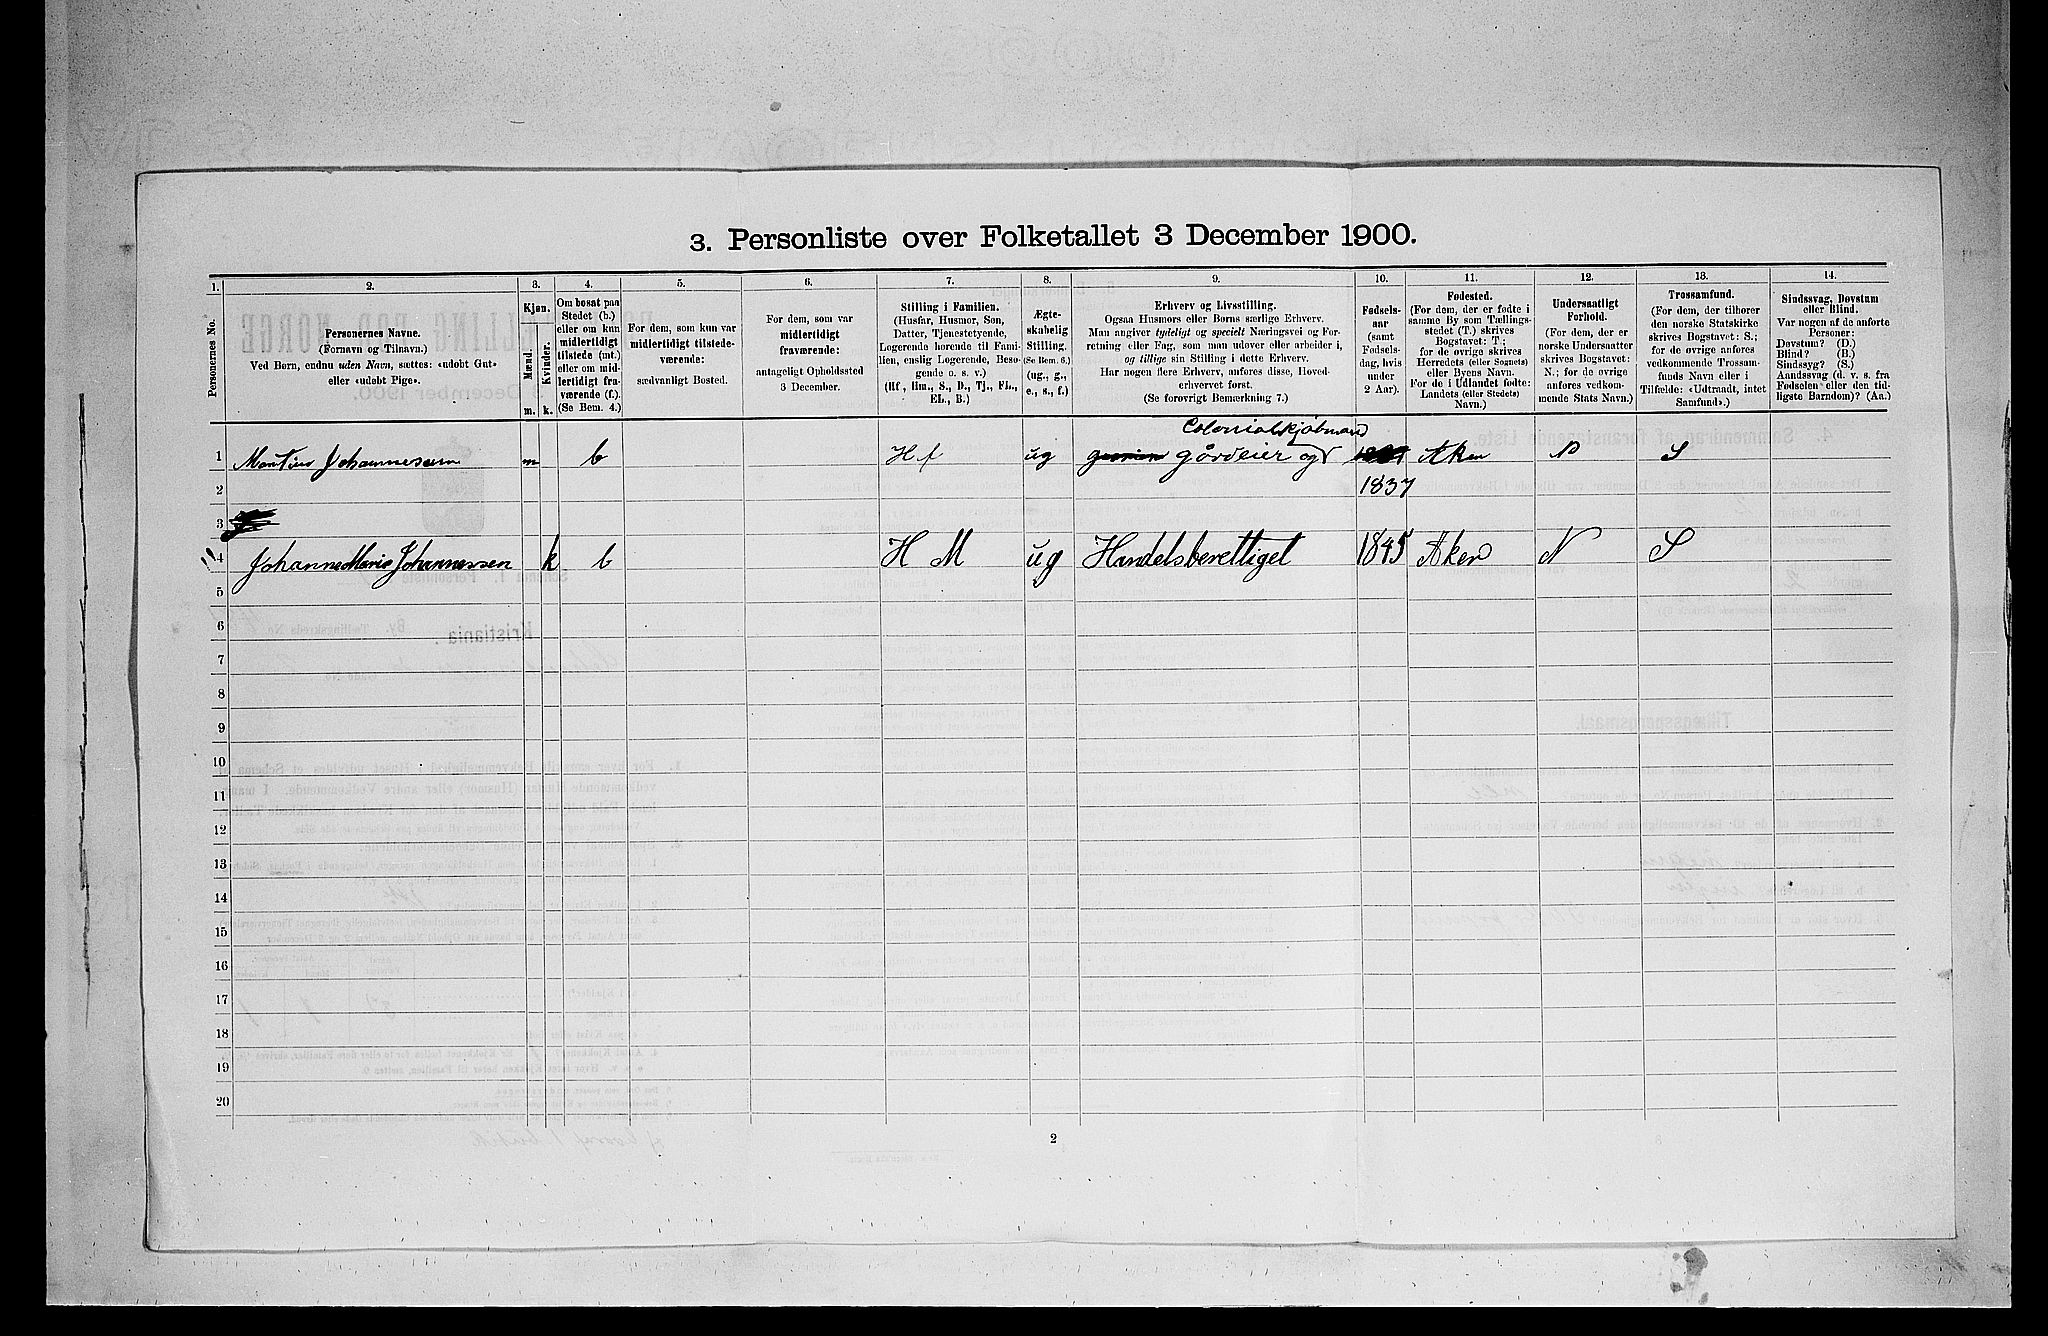 3. Personliste over Folketallet 3 December 1900.
1. 2. 3. 4. 5. 6. 7. 8. 9. 10. 11. 12. 13. 14.
Personernes No.
Personernes Navne.
(Fornavn og Tilnavn.)
Ved Børn, endnu uden Navn, sættes: «udøbt Gut»
eller «udøbt Pige».
Kjøn.
Mænd.
Kvinder.
m. k.
Om bosat paa
Stedet (b.)
eller om kun
midlertidigt
tilstede (mt.)
eller om mid-
lertidigt fra-
værende (f.).
(Se Bem. 4.)
For dem, som kun var
midlertidigt tilstede-
værende:
sædvanligt Bosted.
For dem, som var
midlertidigt
fraværende:
antageligt Opholdssted
3 December.
Stilling i Familien.
(Husfar, Husmor, Søn,
Datter, Tjenestetyende,
Logerende hørende til Fami-
lien, enslig Logerende, Besø-
gende o. s. v.)
(Hf, Hm., S., D., Tj., FL.,
EL., B.)
Ægte-
skabelig
Stilling.
(Se Bem. 6.)
(ug., g.,
e., s., f.)
Erhverv og Livsstilling.
Ogsaa Husmors eller Børns særlige Erhverv.
Man angiver tydeligt og specielt Næringsvei og For-
retning eller Fag, som man udøver eller arbeider i,
og tillige sin Stilling i dette Erhverv.
Har nogen flere Erhverv, anføres disse, Hoved-
erhvervet først.
(Se forøvrigt Bemærkning 7.)
Fødsels-
aar
(samt
Fødsels-
dag, hvis
under
2 Aar).
Fødested.
(For dem, der er fødte i
samme By som Tællings-
stedet (T.) skrives
Bogstavet: T.;
for de øvrige skrives
Herredets (eller Sognets)
eller Byens Navn.
For de i Udlandet fødte:
Landets (eller Stedets)
Navn.)
Undersaatligt
Forhold.
(For dem, der er
norske Undersaatter
skrives Bogstavet:
N.; for de øvrige
anføres vedkom-
mende Stats Navn.)
Trossamfund.
(For dem, der tilhører
den norske Statskirke
skrives Bogstavet: S.;
for de øvrige anføres
vedkommende Trossam-
funds Navn eller i
Tilfælde: «Udtraadt, intet
Samfund».)
Sindssvag, Døvstum
eller Blind.
Var nogen af de anførte
Personer:
Døvstum? (D.)
Blind? (B.)
Sindssyg? (S.)
Aandssvag (d. v. s. fra
Fødselen eller den tid-
ligste Barndom)? (Aa.)
Colonialkjøbmand
1 Johannesen m b Hf ug gårdeier og Aker N S
2 1837
3
4 Johanne Marie Johannessen k b H M ug Handelsberettiget 1845 Aker N S
5
6
7
8
9
10
11
12
13
14
15
16
17
18
19
20
2